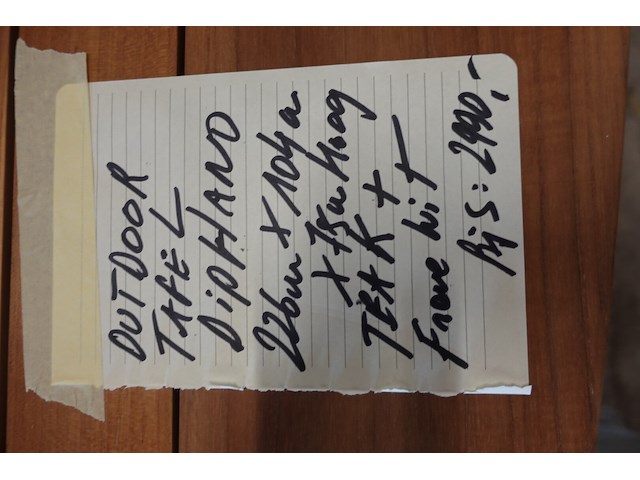 OUTDOOR
TAFEL
DiPHANO
226cm X 104cm
X 75cm Hoog
TEAK +
Frame wit
PRijS: 2990,-